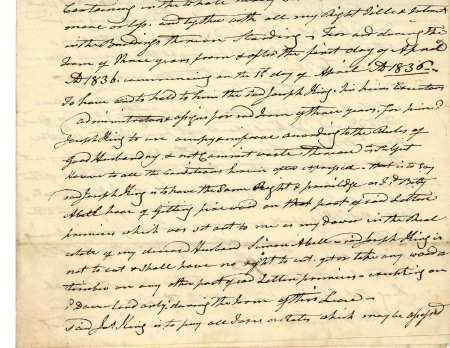 Containing in the whole
more or less, and together with all my Right Title & Interest
in the Buildings thereon Standing - For and during the
Term of three years from & after the first day of April
AD 1836. commencing on the 1st day of April AD 1836.
To have and to hold to him the sd Joseph King his heirs Executors
administrators & assigns for said term of three years, for him sd
Joseph King to use occupy & improve according to the Rules of
Good Husbandry, & not Commit waste thereon to Subject
However to all the Conditions herein after expressed - that is to say
sd Joseph King is to have the Same Right & privilege as I sd Betty
Abell have of Getting fire wood on that part of said Listed
premises which was set out to me as my Dower in the Real
estate of my deceased Husband Simon Abell - sd Joseph King is
not to cut & shall have no right to cut, get or take any wood or
timber on any other part of said Letten premises - excepting on
sd Dower land only, during the term of this Lease -
said Jos. King is to pay all Taxes or rates which may be assessed